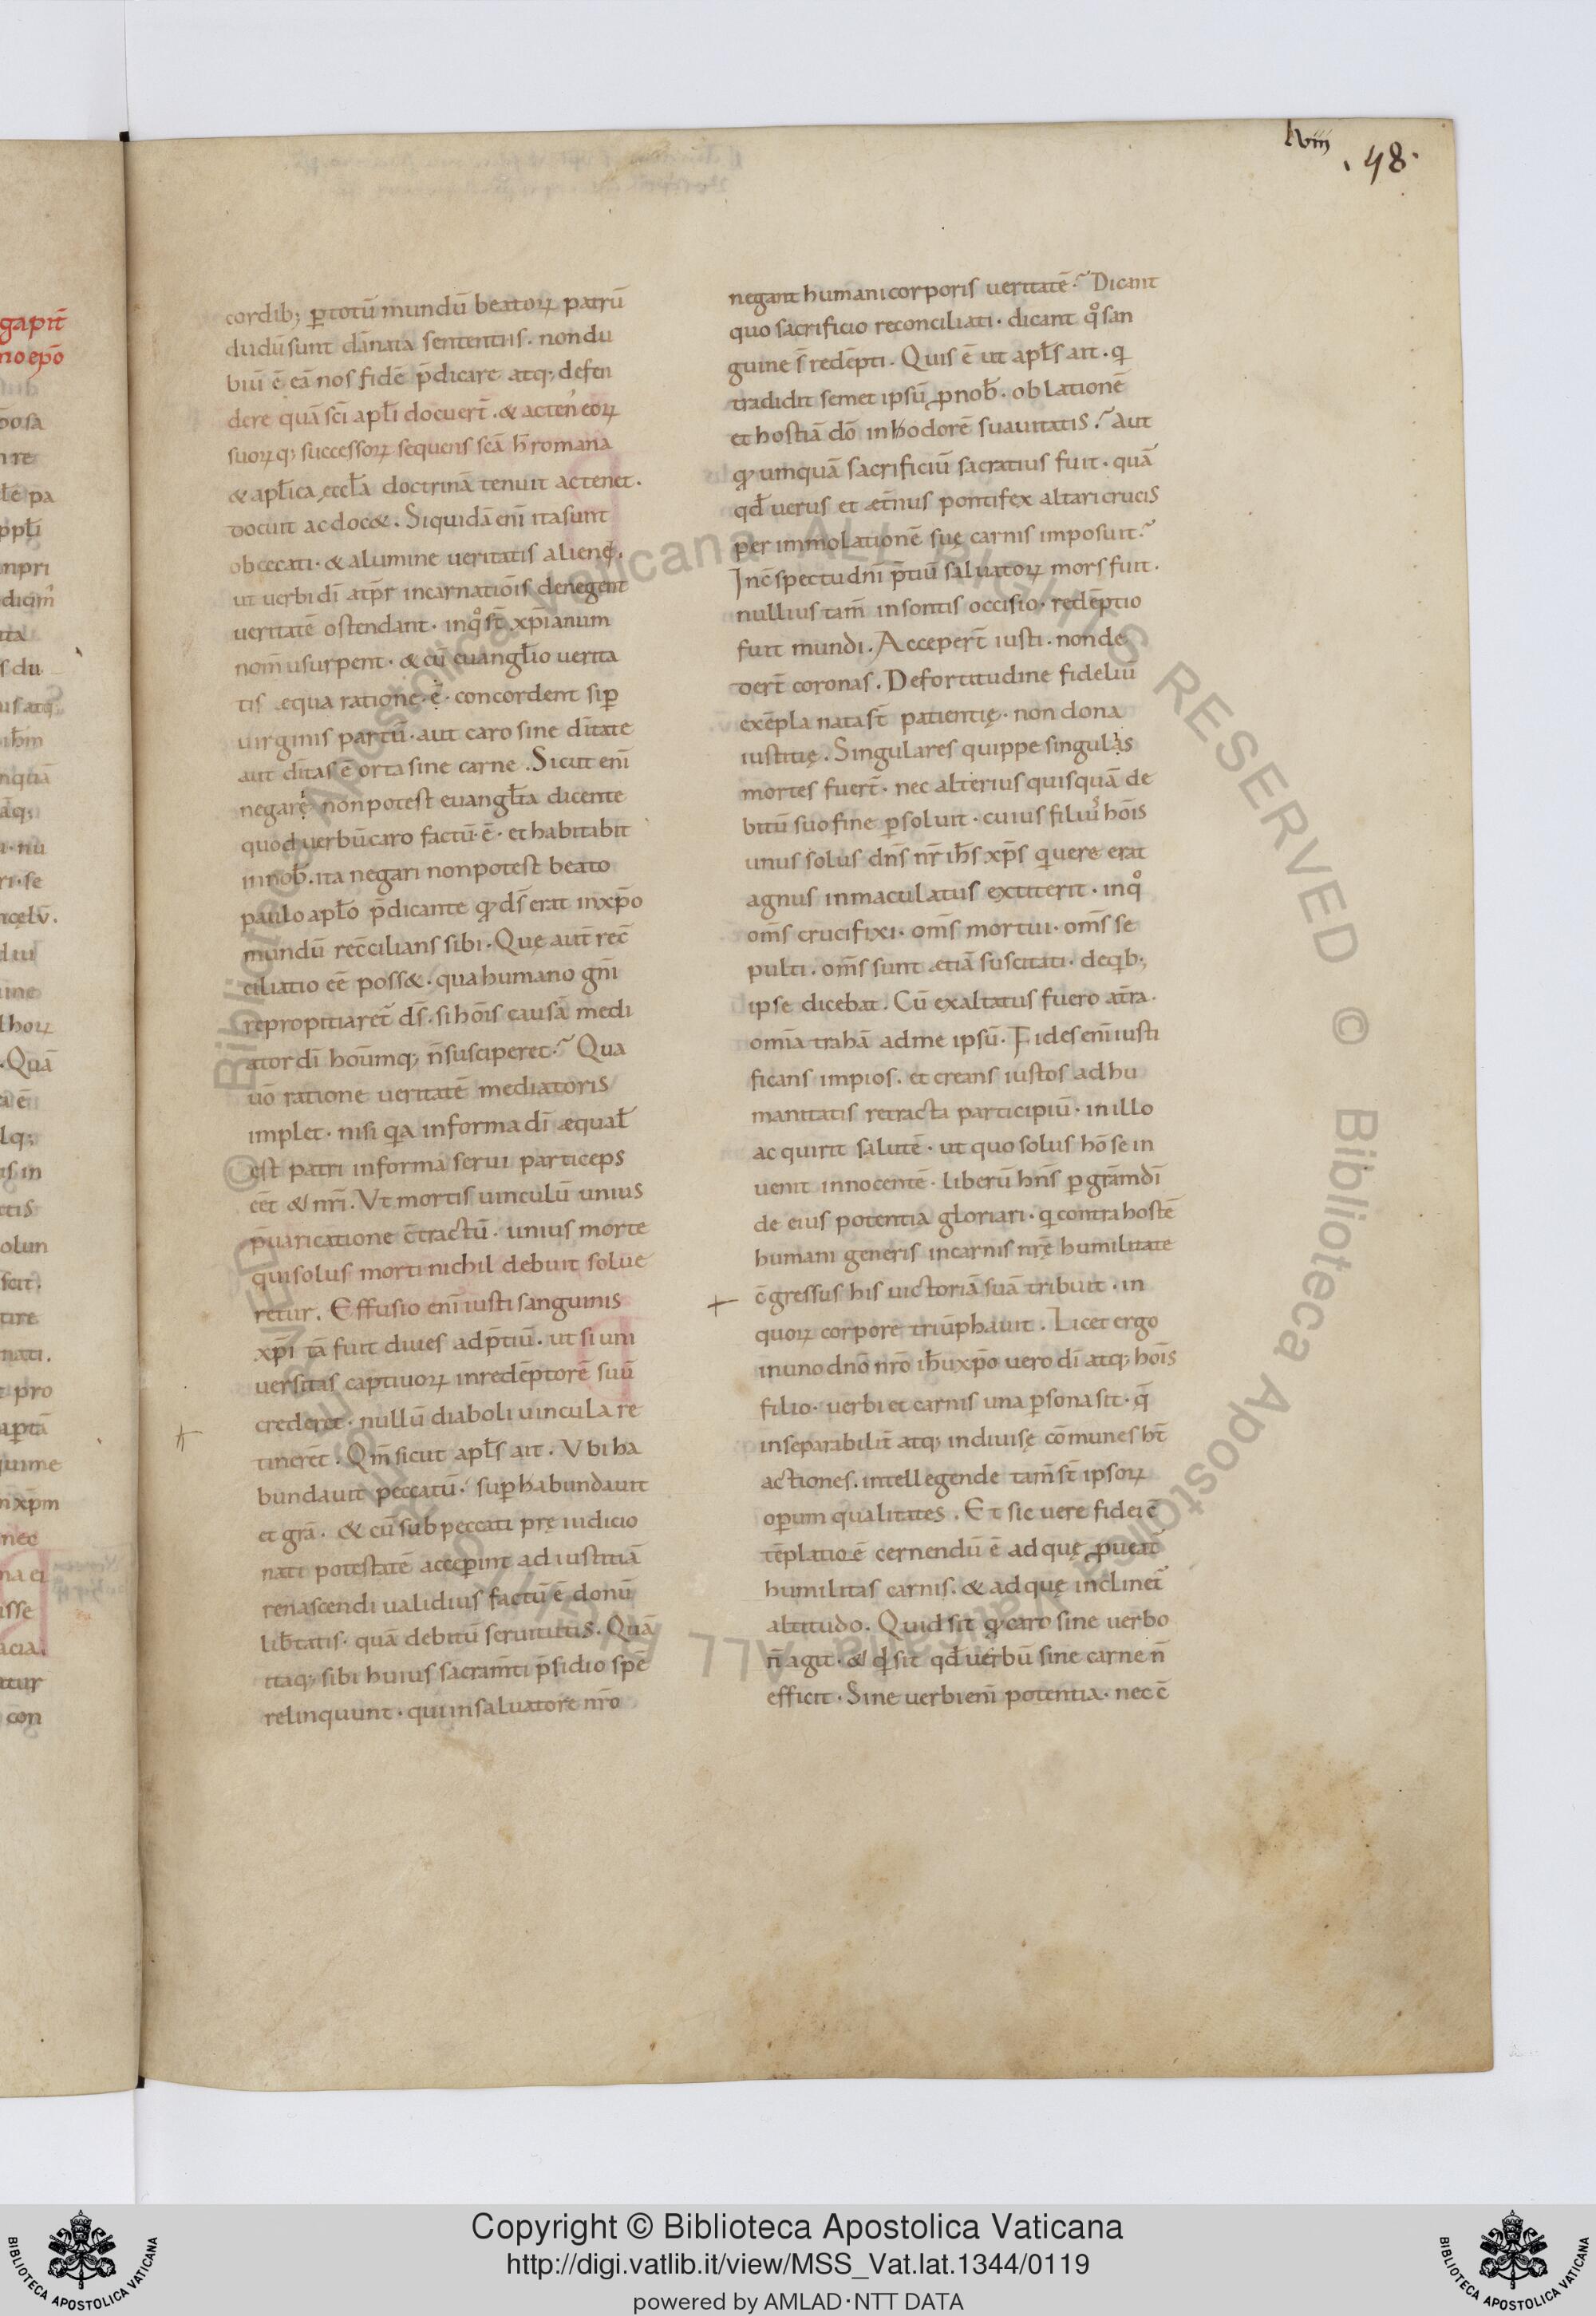 lviii
.48.
cordib; ꝑ totū mundū beatoꝝ patrū
dudū sunt dānata sententiis. non du
biū ē eā nos fidē p̄dicare atq; defen
dere quā sc̄i apl̄i docuer̄t. & acten' eoꝝ
suoꝝq; successoꝝ sequens sc̄a h̄ romana
& apl̄ica ęccl̄a doctrinā tenuit ac tenet.
docuit ac doc&. Siquidā eni ita sunt
obcecati. & a lumine ueritatis alienę.
ut uerbi dī atp̄r incarnatiōis denegent
ueritatē ostendant. in qͦ st̄ xp̄ianum
nom̄ usurpent. & cū euangl̄io uerita
tis equa ratione. ē. concordent si ꝑ
uirginis partū. aut caro sine dītate
aut dītas ē orta sine carne. Sicut enī
negarę non potest euangl̄ta dicente
quod uerbū caro factū. ē. et habitabit
in nob̄. ita negari non potest beato
paulo apl̄o p̄dicante qꝫ ds̄ erat in xp̄o
mundū rec̄cilians sibi. Quę aut̄ rec̄
ciliatio eē poss&. qua humano gn̄i
repropitiaret̄ ds̄. si hōis causā medi
ator dī hoūmq; n̄ susciperet. Qua
uō ratione ueritatē mediatoris
implet. nisi qa in forma dī æqual̄
est patri in forma serui particeps
eēt & nr̄i. Vt mortis uinculū unius
p̄uaricatione c̄tractū. unius morte
qui solus morti nichil debuit solue
retur. Effusio enī iusti sanguinis
xp̄i tā fuit diues ad p̄tiū. ut si uni
uersitas captiuoꝝ in redēptorē suū
crederet. nullū diaboli uincula re
tinerēt. Qm̄ sicut apl̄s ait. Vbi ha
bundauit peccatū. suꝑhabundauit
et gr̄a. & cū sub peccati pręiudicio
nati potestatē acceꝑint ad iustitiā
renascendi ualidius factū ē donū
lib̄tatis. quā debitū seruitutis. Quā
itaq; sibi huius sacram̄ti p̄sidio spē
relinquunt. qui in saluatore nr̄o
negant humani corporis ueritatē. Dicant
quo sacrificio reconciliati. dicant qͦ san
guine s̄ redēpti. Quis ē ut apl̄s ait. q
tradidit semet ipsū ꝓ nob̄. oblationē
et hostiā dō in hodorē suauitatis. Aut
qꝫ umquā sacrificiū sacratius fuit. quā
qd̄ uerus et æt̄nus pontifex altari crucis
per immolationē suę carnis imposuit.
In c̄spectu dn̄i p̄tiū saluatoꝝ mors fuit.
nullius tam̄ insontis occisio. redēptio
fuit mundi. Acceper̄t iusti. non de
der̄t coronas. De fortitudine fideliū
exēpla nata st̄ patientię. non dona
iustitię. Singulares quippe singulis
mortes fuer̄t. nec alterius quisquā de
bitū suo fine ꝑsoluit. cuius filiu' hōis
unus solus dn̄s nr̄ ih̄s xp̄s q uere erat
agnus inmaculatus extiterit. in qͦ
om̄s crucifixi. om̄s mortui. om̄s se
pulti. om̄s sunt etiā suscitati. de qb;
ipse dicebat. Cū exaltatus fuero a t̄ra.
omīa trahā ad me ipsū. Fides enī iusti
ficans impios. et creans iustos ad hu
manitatis retracta participiū. in illo
acquirit salutē. ut quo solus hō se in
uenit innocentē. liberū hn̄s ꝑ gr̄am dī
de eius potentia gloriari. q contra hostē
humani generis in carnis nr̄ę humilitate
c̄gressus his uictoriā suā tribuit. in
quoꝝ corpore triūphauit. Licet ergo
in uno dn̄o nr̄o ih̄u xp̄o uero dī atq; hōis
filio. uerbi et carnis una ꝑsona sit. q̄
inseparabilit̄ atq; indiuisę cōmunes ht̄
actiones. intellegende tam̄ st̄ ipsoꝝ
oꝑum qualitates. Et sic uere fidei c̄
tēplatio ē cernendū ē ad quę ꝓueat̄
humilitas carnis. & ad quę inclinet̄
altitudo. Quid sit qꝫ caro sine uerbo
n̄ agit. & qd sit qd̄ uerbū sine carne n̄
efficit. Sine uerbi enī potentia. nec c̄
gapit̄
no ep̄o
Copyright © Biblioteca Apostolica Vaticana
http://digi.vatlib.it/view/MSS_Vat.lat.1344/0119
powered by AMLAD·NTT DATA
BIBLIOTECA APOSTOLICA VATICANA
BIBLIOTECA APOSTOLICA VATICANA
© Biblioteca Apostolica Vaticana ALL RIGHTS RESERVED © Biblioteca Apostolica Vaticana ALL RIGHTS RESERVED